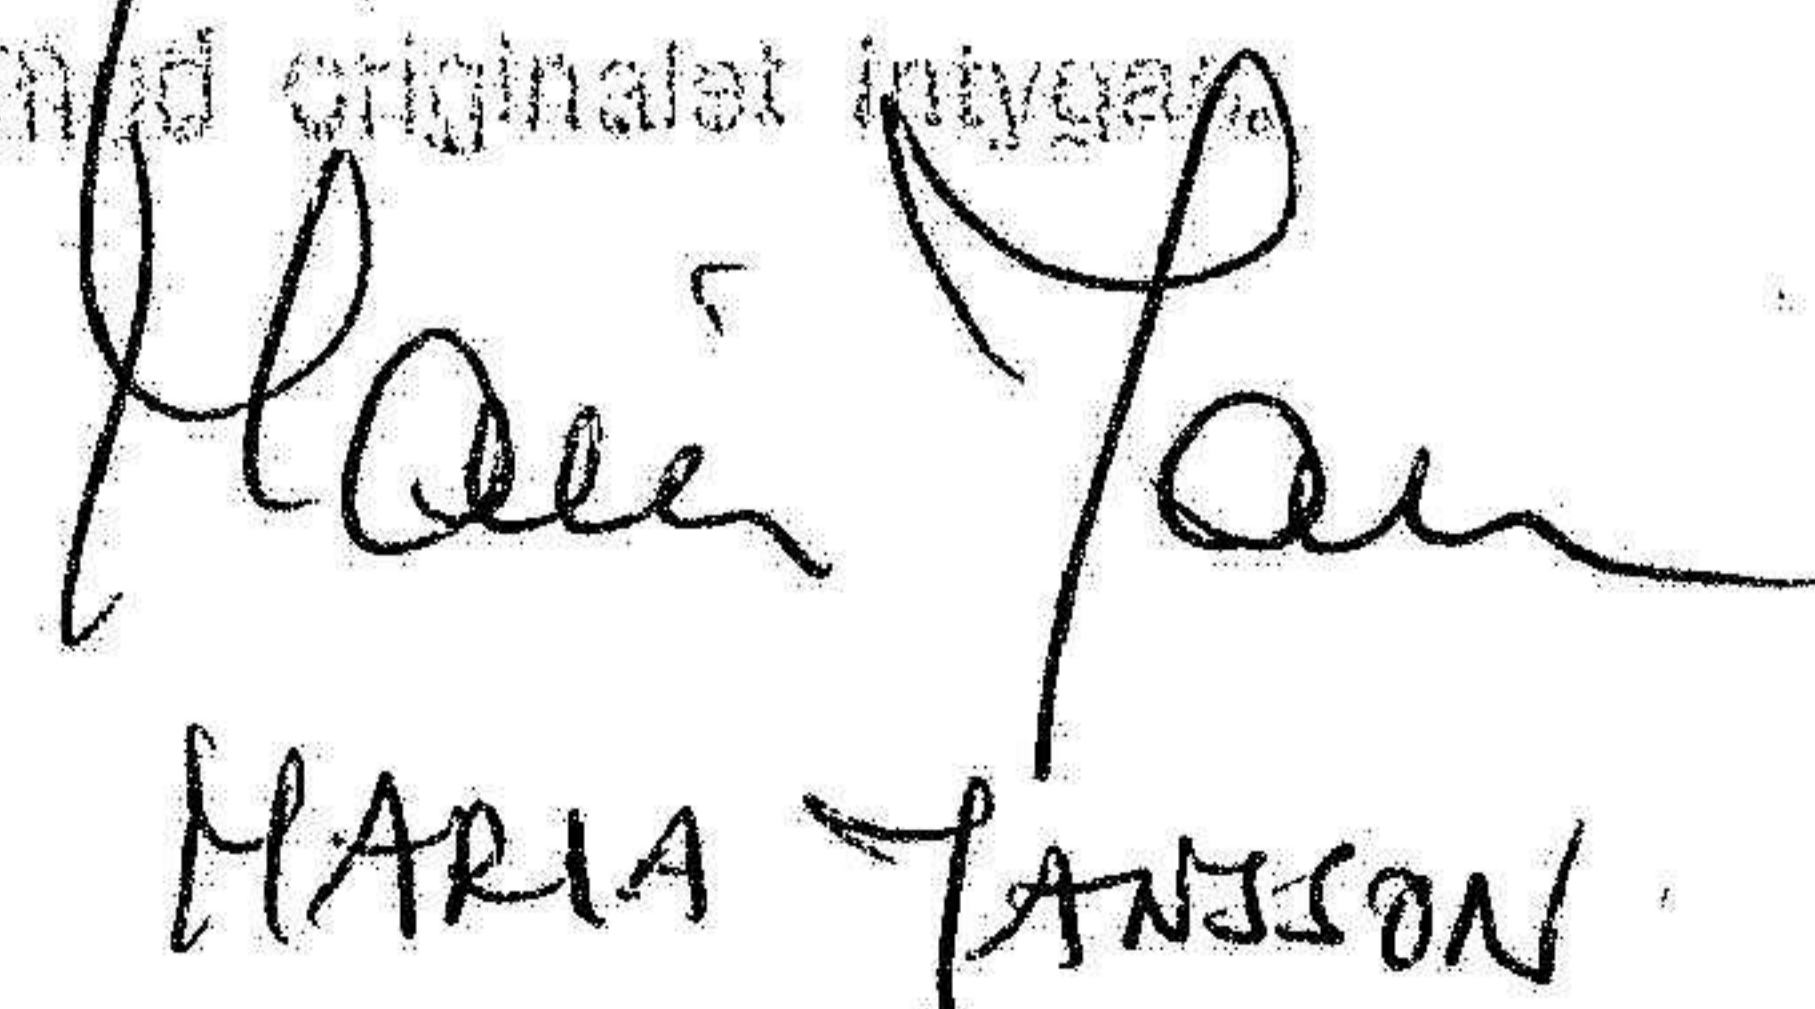 med originalet intygar
Maria Jansson
MARIA JANSSON